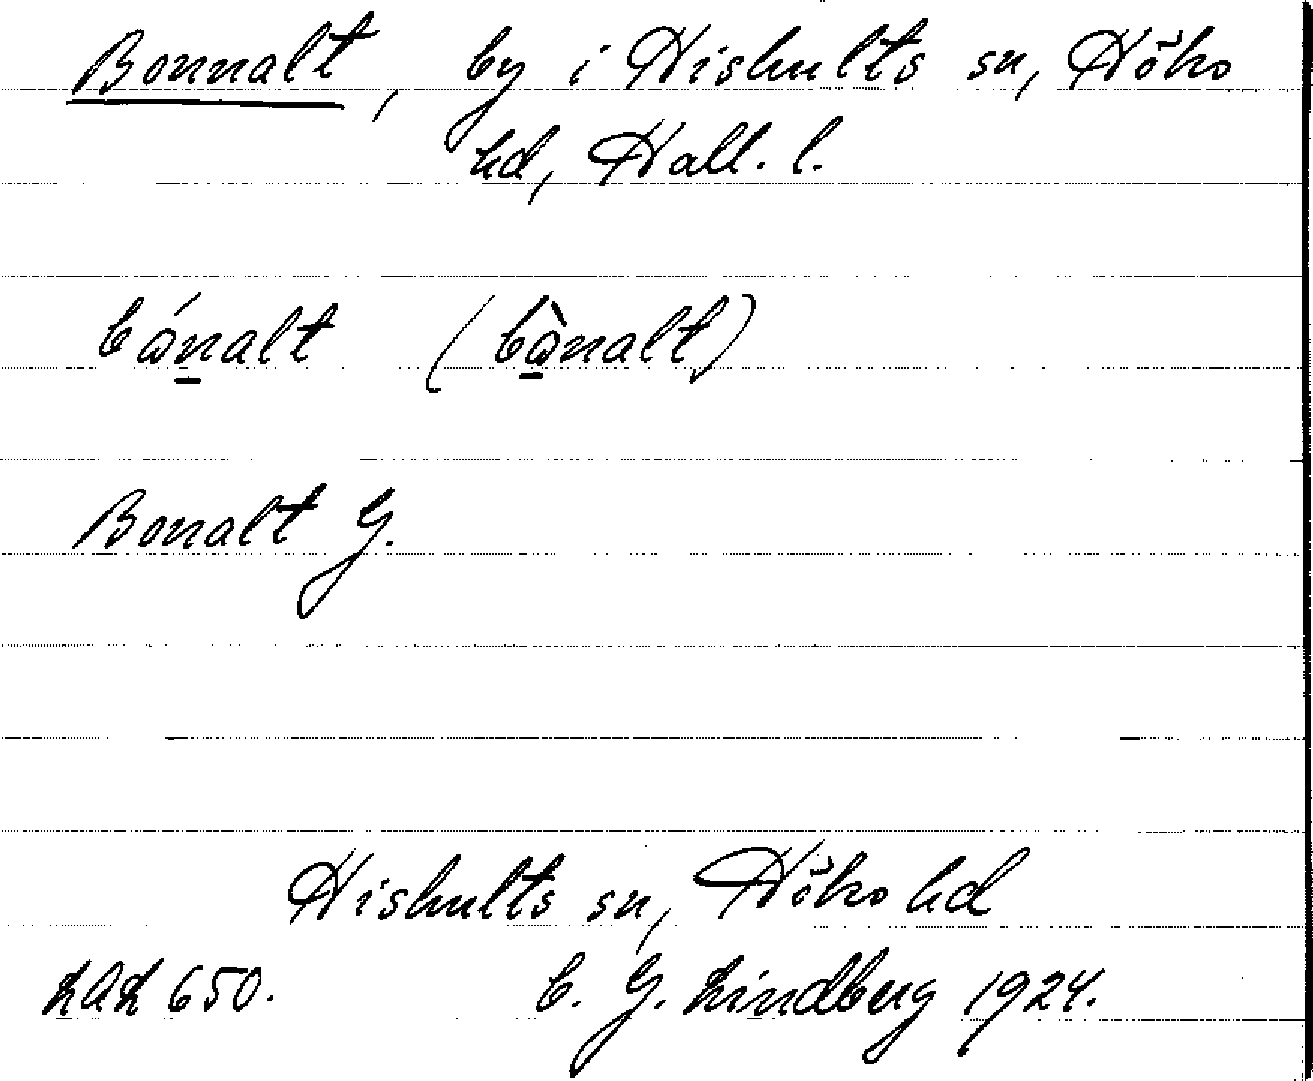 Bonnalt, by i Hishults sn, Höks
hd, Hall. l.
bǿn̲alt (bø̲̀nalt)
Bonalt G.
Hishults sn, Höks hd
LAL 650. C. G. Lindberg 1924.